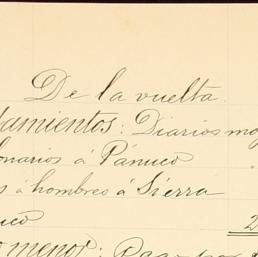 De la vuelta.
damientos: Diarios mo
onarios á Pánuco
s á hombres á Sierra
uco 2
o menor: Pago por